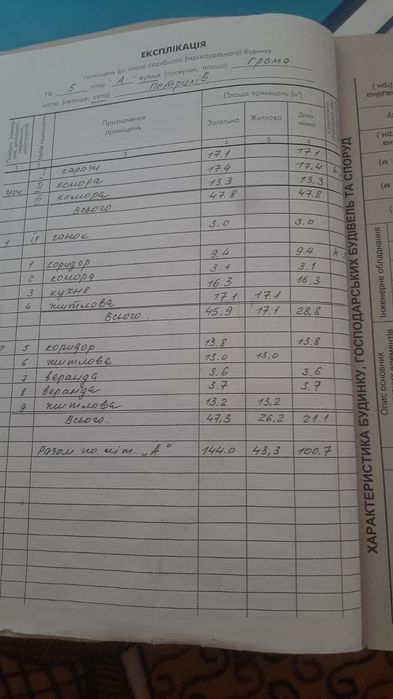 ЕКСПЛІКАЦІЯ
приміщень до плану садибного (індивідуального) будинку
№ 5 літер "А" вулиця (провулок, площа) Грома
місто (селище, село) Петрилів
Призначення приміщень
Площа приміщень (м²)
Загальна Житлова Допоміжна
I гараж 17.1 17.1
II комора 17.4 17.4
Цок III комора 13.3 13.3
Всього: 47.8 47.8
1 IV ганок 3.0 3.0
1 коридор 9.4 9.4
2 комора 3.1 3.1
3 кухня 16.3 16.3
4 житлова 17.1 17.1
Всього: 45.9 17.1 28,8
2 5 коридор 13,8 13.8
6 житлова 13.0 13.0
7 веранда 3.6 3.6
8 веранда 3.7 3.7
9 житлова 13,2 13,2
Всього: 47,3 26,2 21.1
Разом по літ. „А" 144.0 43,3 100.7
ХАРАКТЕРИСТИКА БУДИНКУ, ГОСПОДАРСЬКИХ БУДІВЕЛЬ ТА СПОРУД
Інженерне обладнання
Опис основних